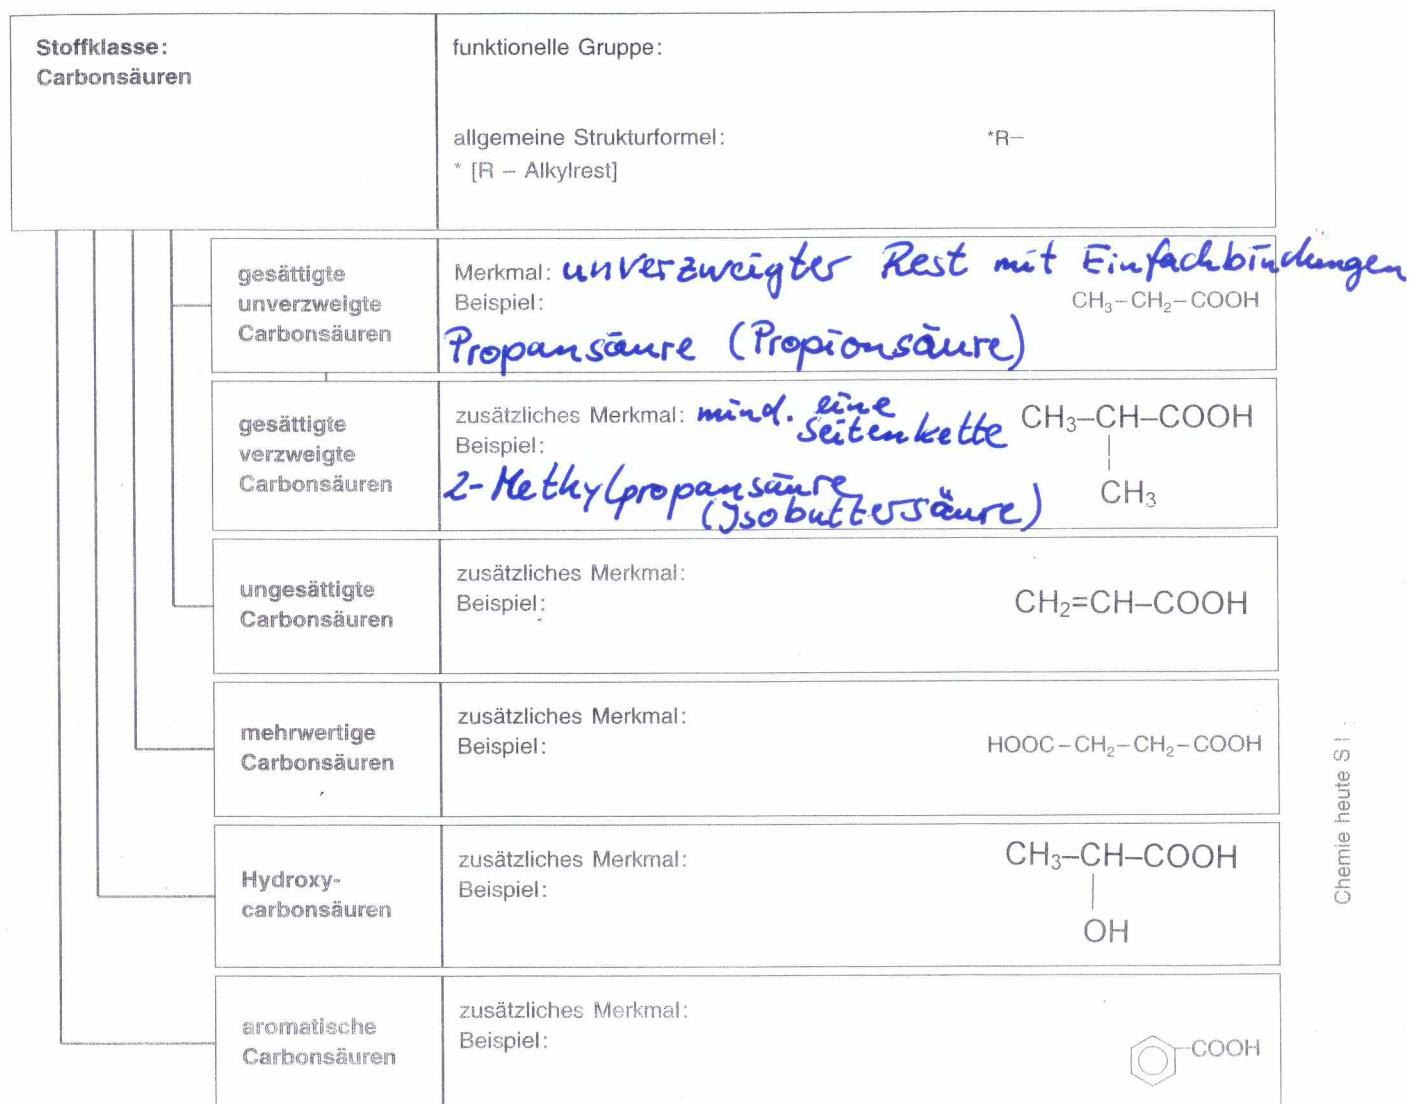 Stoffklasse:
Carbonsäuren
funktionelle Gruppe:
allgemeine Strukturformel: *R–
* [R – Alkylrest]
gesättigte
unverzweigte
Carbonsäuren
Merkmal: unverzweigter Rest mit Einfachbindungen
Beispiel: CH₃–CH₂–COOH
Propansäure (Propionsäure)
gesättigte
verzweigte
Carbonsäuren
zusätzliches Merkmal: mind. eine
Seitenkette
CH₃–CH–COOH
Beispiel:
CH₃
2-Methylpropansäure
(Isobuttersäure)
ungesättigte
Carbonsäuren
zusätzliches Merkmal:
Beispiel:
CH₂=CH–COOH
mehrwertige
Carbonsäuren
zusätzliches Merkmal:
Beispiel: HOOC–CH₂–CH₂–COOH
Hydroxy-
carbonsäuren
zusätzliches Merkmal:
Beispiel:
CH₃–CH–COOH
OH
aromatische
Carbonsäuren
zusätzliches Merkmal:
Beispiel:
–COOH
Chemie heute S I